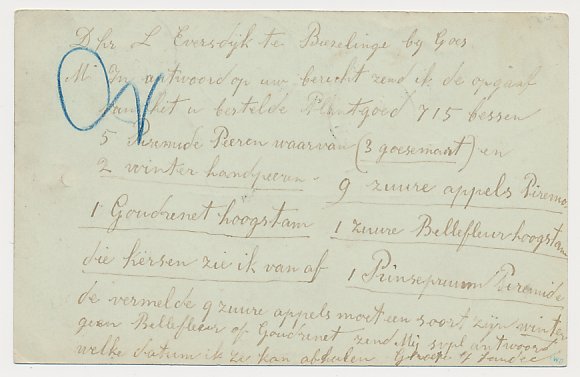 Dhr L Eversdijk te Biezelinge by Goes
M In antwoord op uw bericht zend ik de opgaaf
van het u bestelde Plantgoed 715 bessen
5 Piremide Peeren waarvan (3 goesemaat) en
2 winter handpeeren. 9 zuure appels Piremi
1 Goudrenet hoogstam 1 zuure Bellefleur hoogstam
die kersen zie ik van af 1 Prinsepruum Piremide
de vermelde 9 zuure appels moet een soort zijn winter
geen Bellefleur of Goudrenet zend Mij svpl antwoord
welke datum ik ze kan afhalen